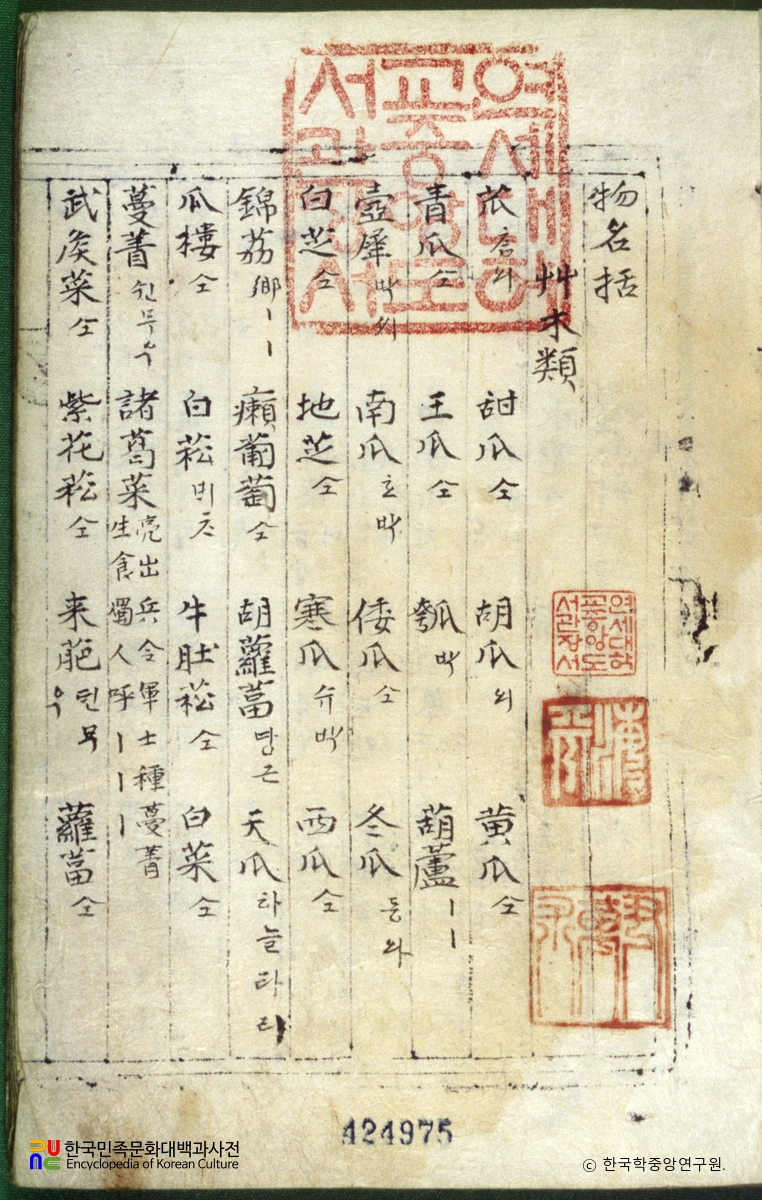 物名括
艸木類
苽 춤외 甜瓜 仝 胡瓜 외 黃瓜 仝
青瓜 仝 王瓜 仝 瓠 박 葫蘆 〡〡
壺犀 박씨 南瓜 호박 倭瓜 仝 冬瓜 동와
白芝 仝 地芝 仝 寒瓜 슈박 西瓜 仝
錦荔 鄉〡〡 癩葡萄 仝 胡蘿葍 당근 天瓜 하늘타리
瓜摟 仝 白菘 비초 牛肚菘 仝 白菜 仝
蔓菁 쉰무우 諸葛菜 亮出兵令軍士種蔓菁
生食蜀人呼〡〡〡
武侯菜 仝 紫花菘 仝 来葩 댄무우 蘿葍 仝
연세대학
교중앙도
서관장서
연세대학
교중앙도
서관장서
424975
한국민족문화대백과사전
Encyclopedia of Korean Culture
ⓒ 한국학중앙연구원.